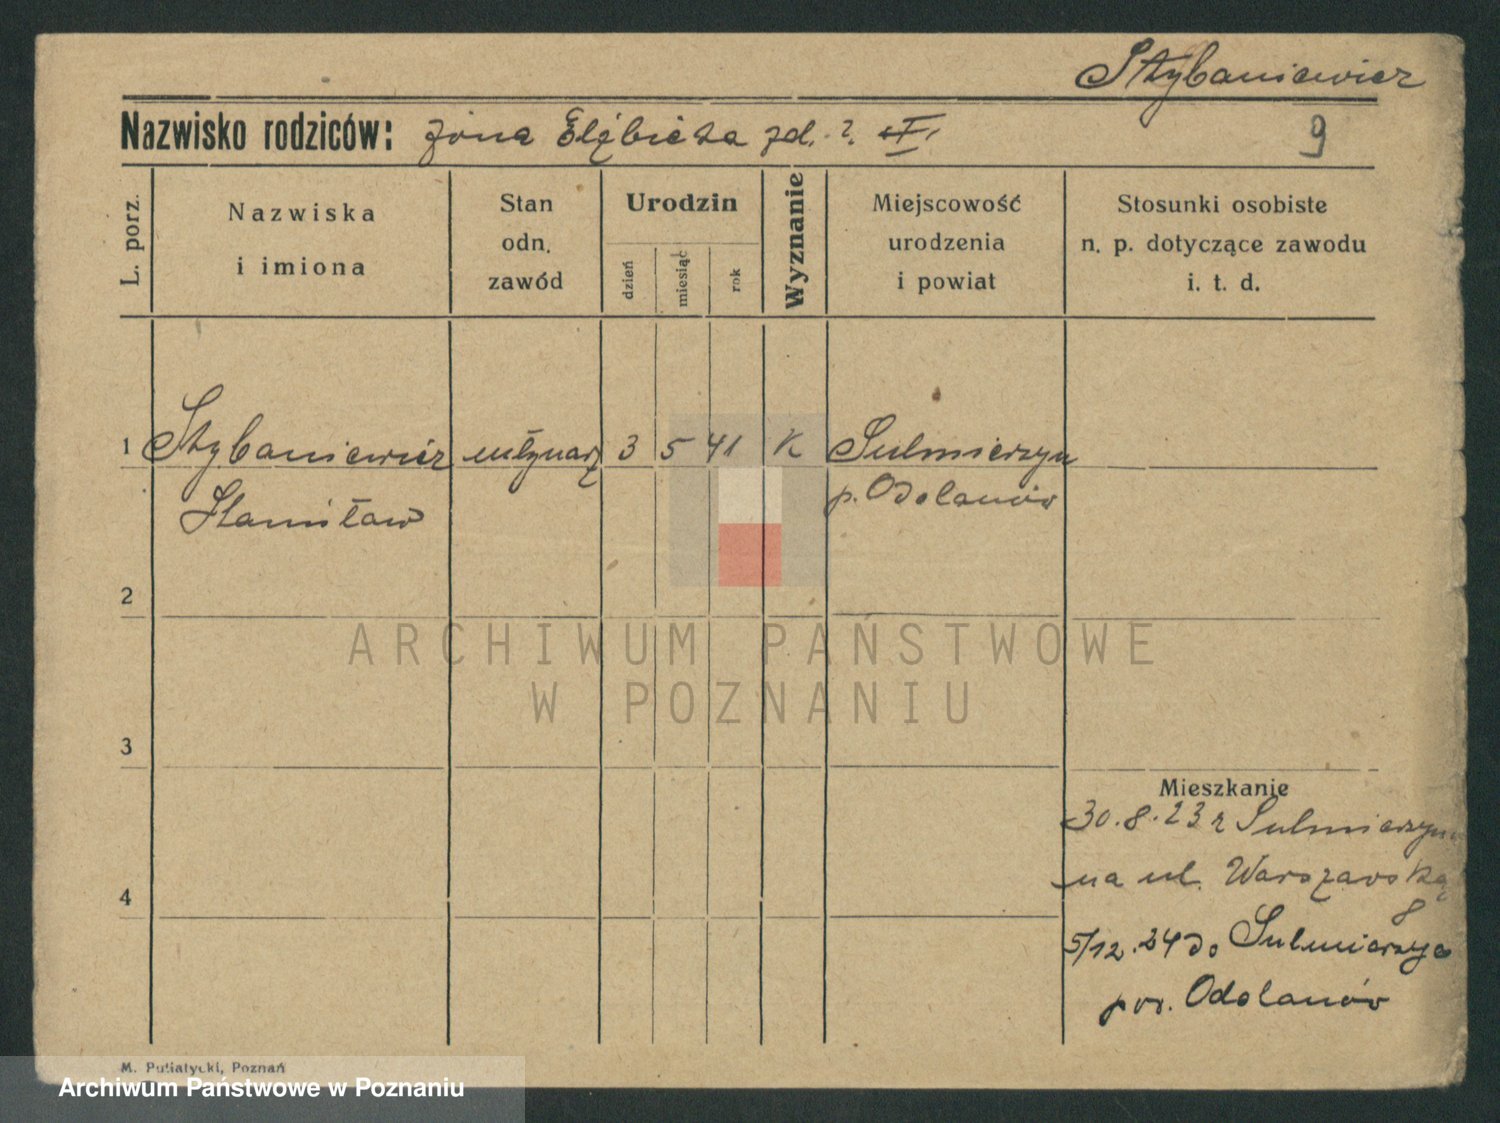 Stybaniewicz
Nazwisko rodziców: żona Elżbieta zd. ?
9
L. porz.
Nazwiska
i imiona
Stan
odn.
zawód
Urodzin
dzień
miesiąc
rok
Wyznanie
Miejscowość
urodzenia
i powiat
Stosunki osobiste
n. p. dotyczące zawodu
i. t. d.
1 Stybaniewicz młynarz 3 5 41 K Sulmierzyce
Stanisław p. Odolanów
2
ARCHIWUM PAŃSTWOWE
W POZNANIU
3
Mieszkanie
30.8.23 z Sulmierzyc
na ul. Warszawską
8
4
5/12.24 do Sulmierzyc
pow. Odolanów
M. Putiatycki, Poznań
Archiwum Państwowe w Poznaniu